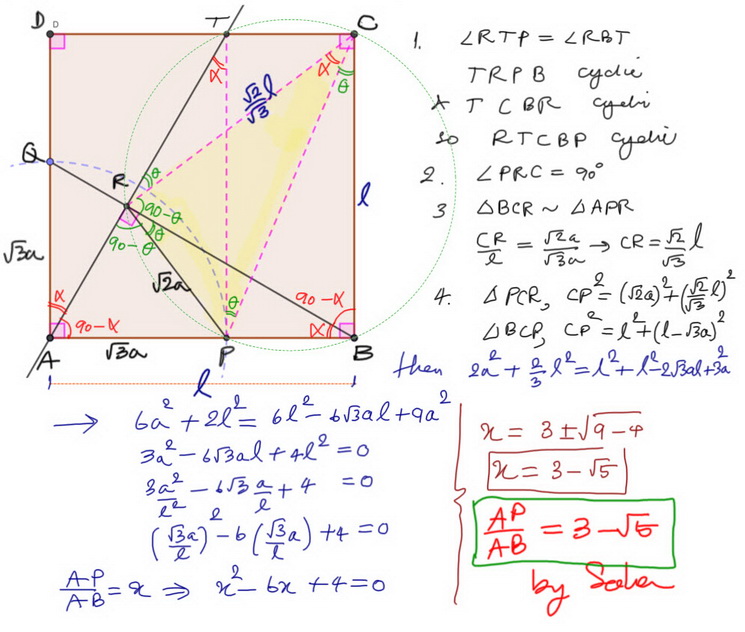 D D T C
α α θ
√2/√3 l
Q R θ
90-θ
90-θ θ
l
√3a √2a
α θ 90-α
90-α α
A √3a P B
l
1. ∠RTP = ∠RBT
TRPB cyclic
∧ TCBR cyclic
so RTCBP cyclic
2. ∠PRC = 90°
3 △BCR ~ △APR
CR/l = √2a/√3a → CR = √2/√3 l
4. △PCR, CP² = (√2a)² + (√2/√3 l)²
△BCP, CP² = l² + (l-√3a)²
then 2a² + 2/3 l² = l² + l² - 2√3al + 3a²
→ 6a² + 2l² = 6l² - 6√3al + 9a²
3a² - 6√3al + 4l² = 0
3a²/l² - 6√3 a/l + 4 = 0
(√3a/l)² - 6(√3a/l) + 4 = 0
AP/AB = x ⇒ x² - 6x + 4 = 0
x = 3 ± √9-4
x = 3 - √5
AP/AB = 3 - √5
by Saber